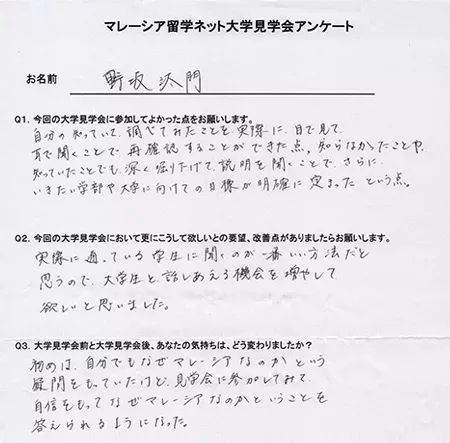 マレーシア留学ネット大学見学会アンケート
お名前 野坂汰門
Q1. 今回の大学見学会に参加してよかった点をお願いします。
自分の知っていて、調べてみたことを実際に、目で見て、
耳で聞くことで、再確認することができた点。知らなかったことや、
知っていたことでも、深く掘り下げて、説明を聞くことで、さらに、
いきたい学部や大学に向けての目標が明確に定まったという点。
Q2. 今回の大学見学会において更にこうして欲しいとの要望、改善点がありましたらお願いします。
実際に通っている学生に聞くのが一番いい方法だと
思うので、大学生と、話しあえる機会を増やして
欲しいと思いました。
Q3. 大学見学会前と大学見学会後、あなたの気持ちは、どう変わりましたか?
初めは、自分でもなぜマレーシアなのかという
疑問をもっていたけど、見学会に参加してみて、
自信をもってなぜマレーシアなのかということを
答えられるようになった。